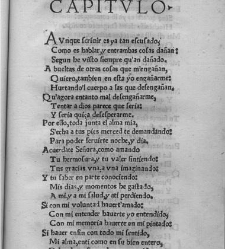 CAPITVLO.
AVnque scriuir es ya tan escusado,
Como es hablar, y entrambas cosas dañan:
Segun he visto siempre qu'an dañado.
A bueltas de otras cosas que m'engañan,
Quiero, tambien en esta yo engañarme:
Hurtando'l cuerpo a las que desengañan.
Qu'agora entanto mal desengañarme,
Tentar a dios parece que seria:
Y seria quiça desesperarme.
Por esso, toda junta el alma mia,
S'echa a tus pies merced te demandando:
Para poder seruirte noche, y dia.
Acordaste Señora, como amando
Tu hermosura, y tu valer sintiendo:
Tus gracias vna, a vna imaginando:
Y tu saber en parte conociendo:
Mis dias, y momentos he gastado,
A mi, y a mi salud, y assi perdiendo.
Si con mi voluntad hauert'amado:
Con mi entender hauerte yo entendido,
Con mi memoria hauerte en mi pintado:
Si hauer enfin con todo mi sentido,
Mi alma, en si como en su bien entero,